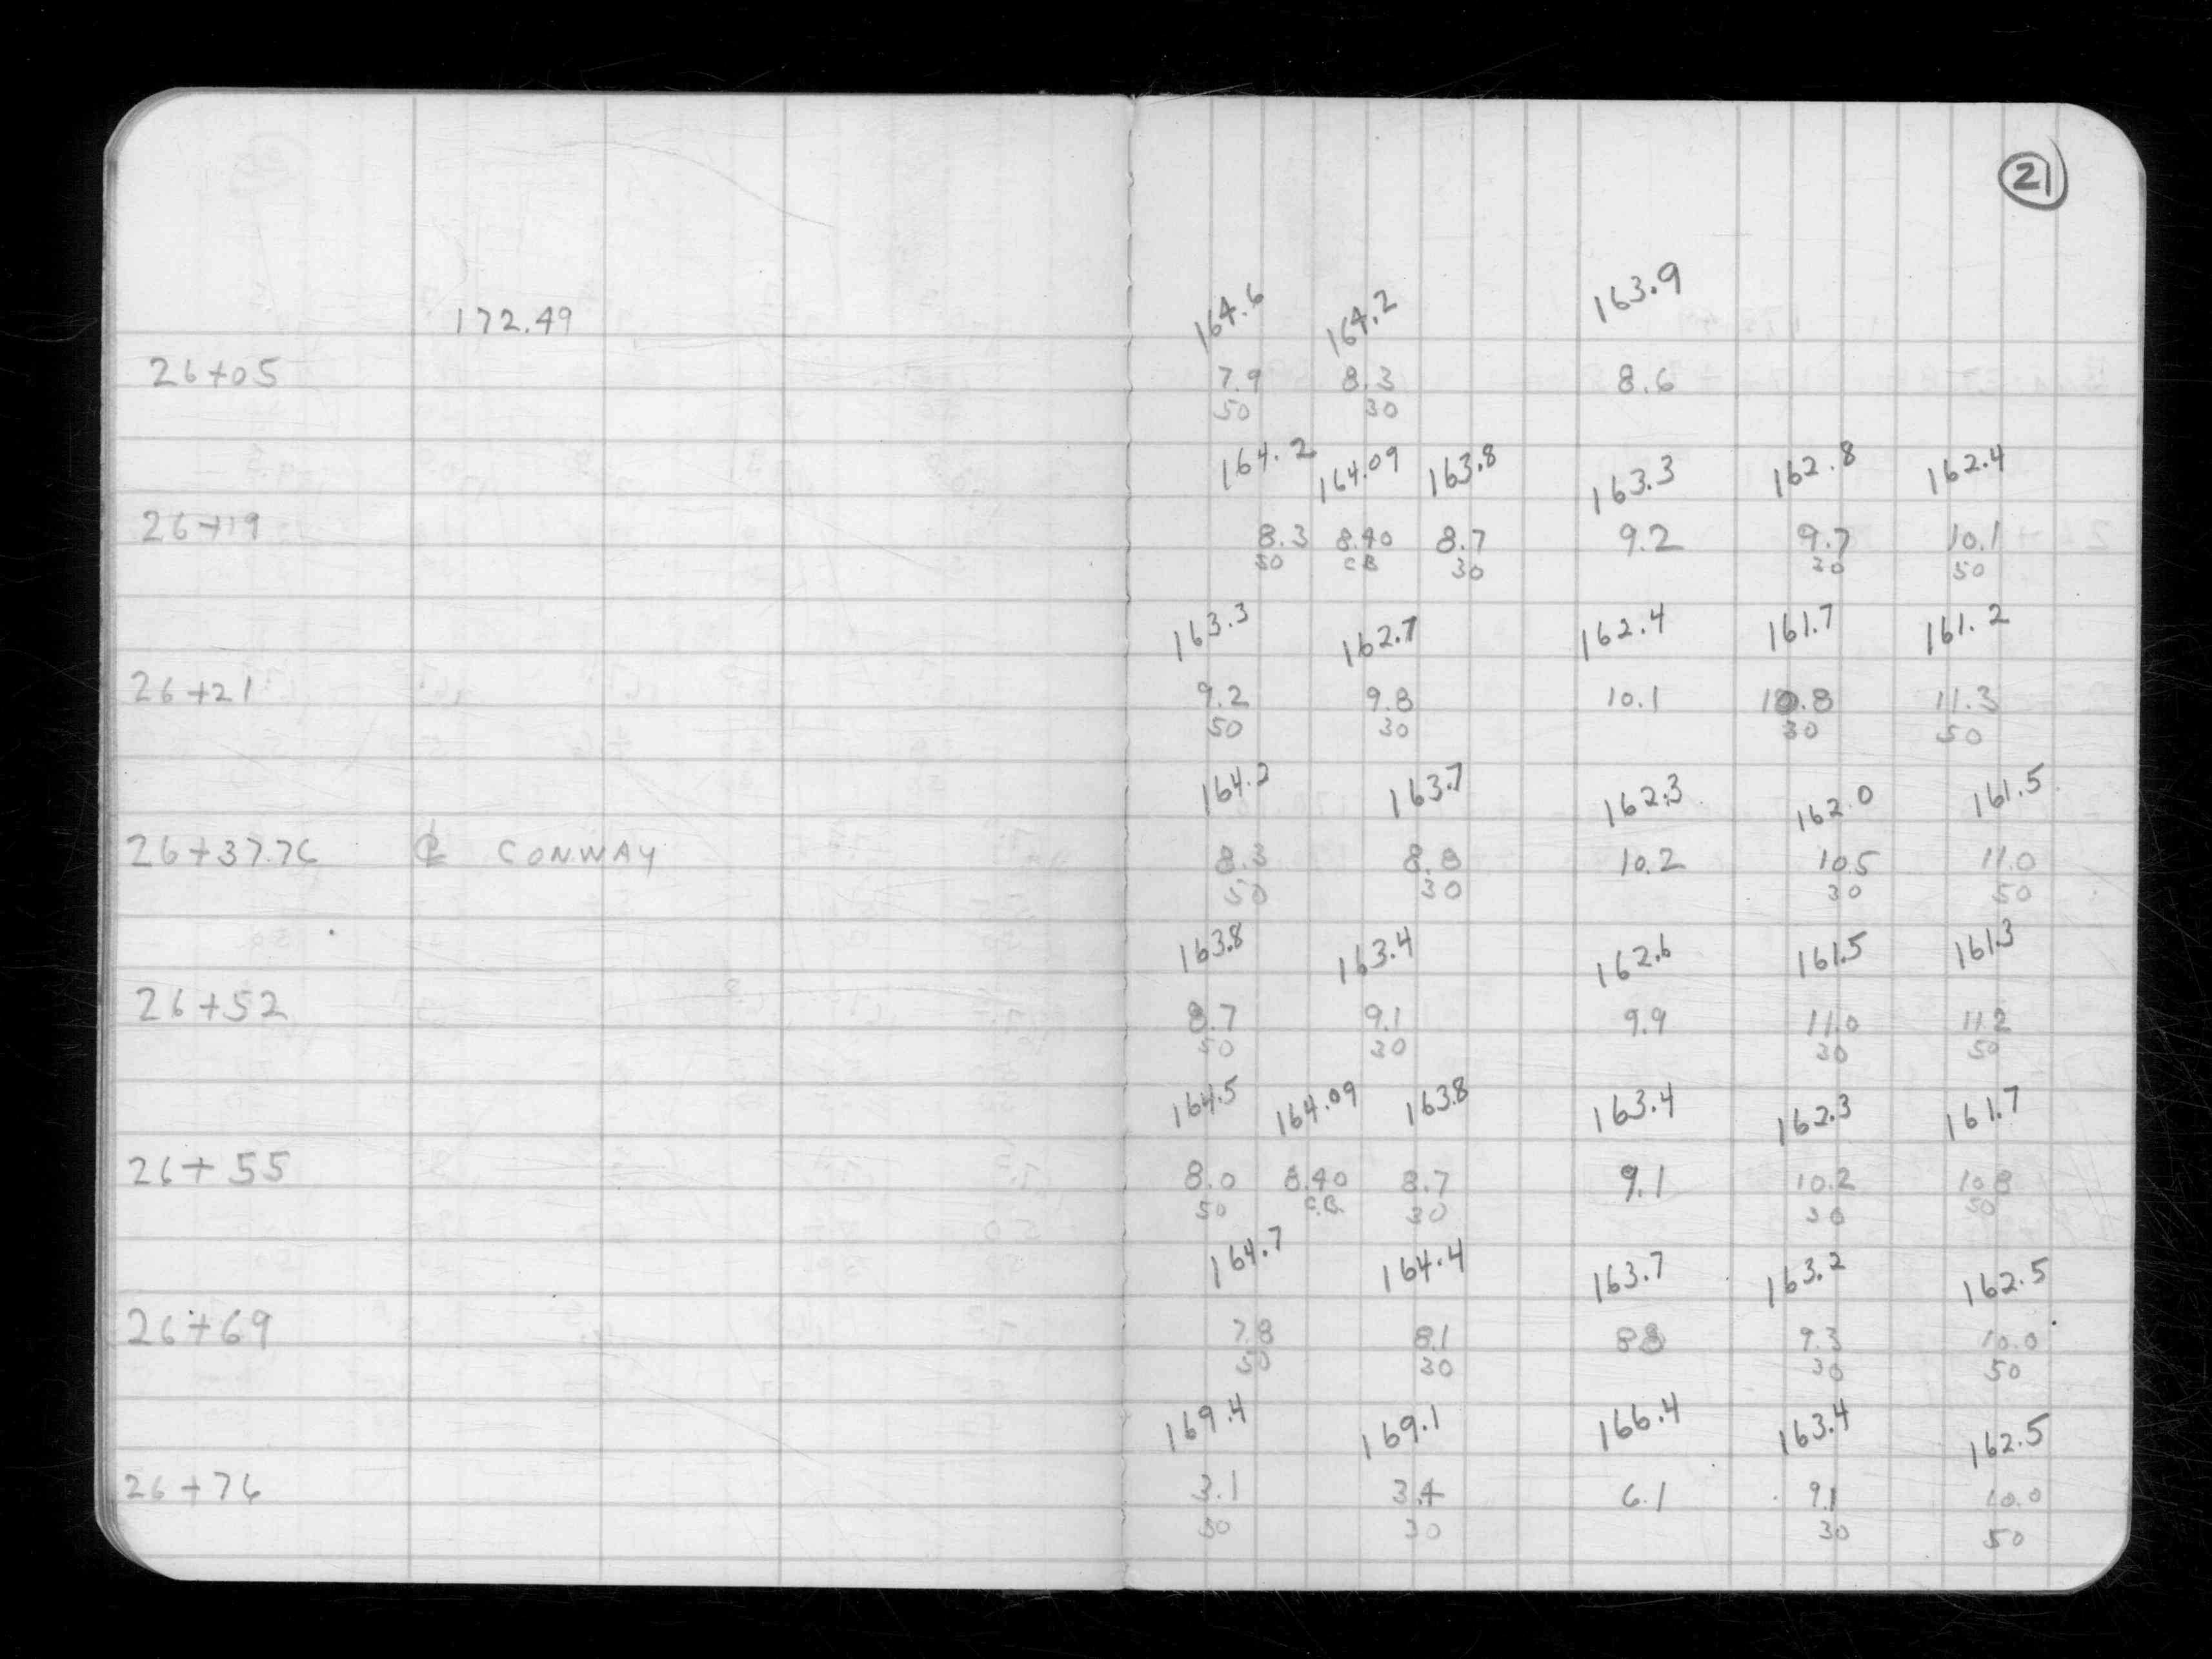 21
172.49 164.6 164.2 163.9
26+05 7.9 8.3 8.6
50 30
164.2 164.09 163.8 163.3 162.8 162.4
26+19 8.3 8.40 8.7 9.2 9.7 10.1
50 CB 30 30 50
163.3 162.7 162.4 161.7 161.2
26+21 9.2 9.8 10.1 10.8 11.3
50 30 30 50
164.2 163.7 162.3 162.0 161.5
26+37.76 ℄ CONWAY 8.3 8.8 10.2 10.5 11.0
50 30 30 50
163.8 163.4 162.6 161.5 161.3
26+52 8.7 9.1 9.9 11.0 11.2
50 30 30 50
164.5 164.09 163.8 163.4 162.3 161.7
26+55 8.0 8.40 8.7 9.1 10.2 10.8
50 C.B. 30 30 50
164.7 164.4 163.7 163.2 162.5
26+69 7.8 8.1 8.8 9.3 10.0
50 30 30 50
169.4 169.1 166.4 163.4 162.5
26+76 3.1 3.4 6.1 9.1 10.0
50 30 30 50